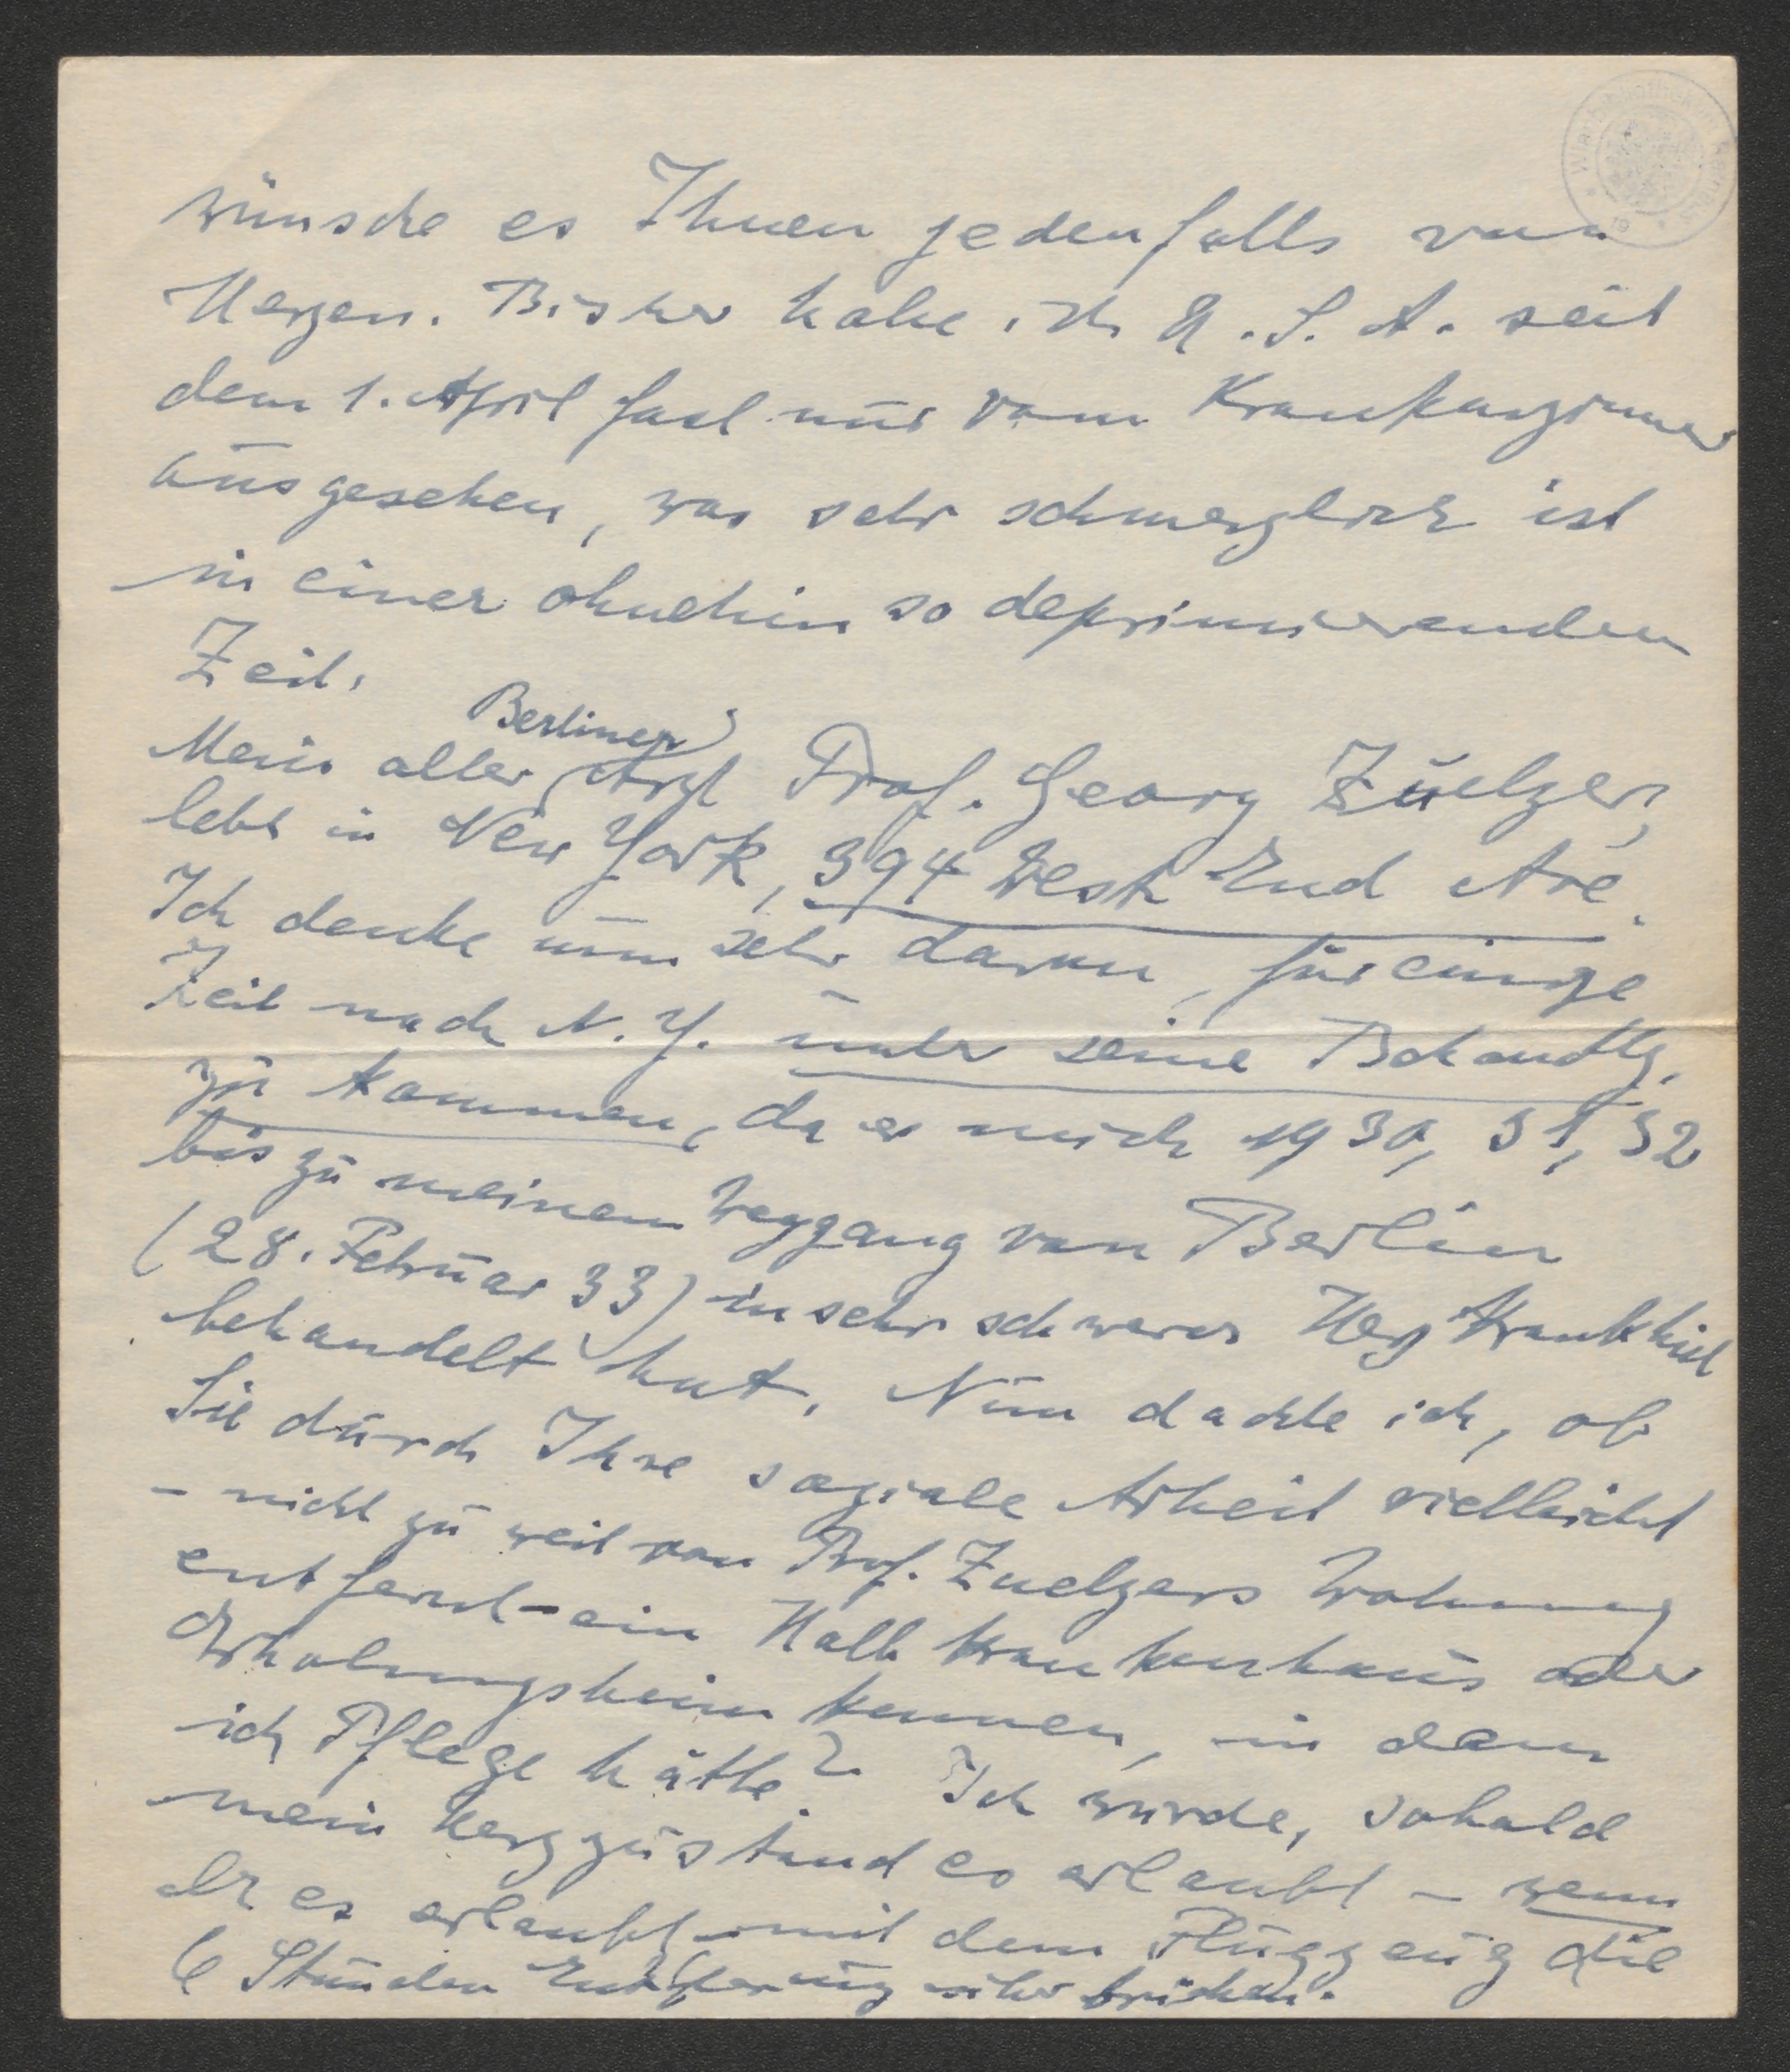 wünsche es Ihnen jedenfalls von
Herzen. Bisher habe ich U.S.A. seit
dem 1. April fast nur vom Krankenzimmer
aus gesehen, was sehr schmerzlich ist
in einer ohnehin so deprimierenden
Zeit.
Berliner
Mein alter Arzt Prof. Georg Zuelzer,
lebt in New York, 394 West End Ave.
Ich denke nun sehr daran, für einige
Zeit nach N.Y. unter seine Behandlg.
zu kommen, da er mich 1930, 31, 32
bis zu meinem Weggang von Berlin
(28. Februar 33) in sehr schwerer Herz Krankheit
behandelt hat. Nun dachte ich, ob
Sie durch Ihre soziale Arbeit vielleicht
– nicht zu weit von Prof. Zuelzers Wohnung
entfernt – ein Halb Krankenhaus oder
Erholungsheim kennen, in dem
ich Pflege hätte? Ich würde, sobald
mein Herzzustand es erlaubt – wenn
er es erlaubt, mit dem Flugzeug die
6 Stunden Entfernung überbrücken.